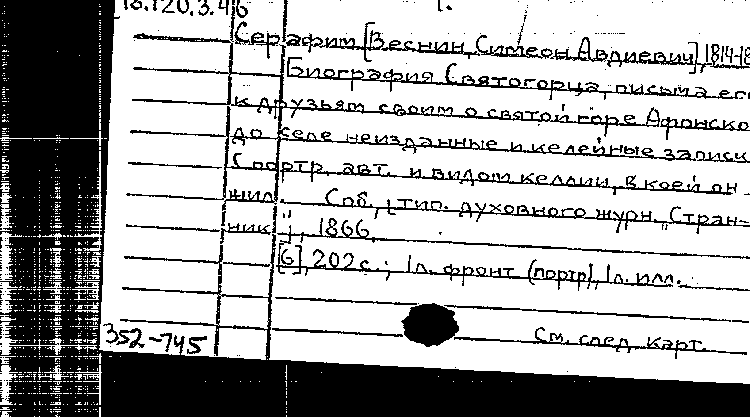 18.120.3.46 1.
Серафим [Веснин, Симеон Авдиевич], 1814-18
Биография Святогорца, письма его
к друзьям своим о святой горе Афонско
до селе неизданные и келейные записк
С портр. авт. и видом келлии, в коей он
жил. Спб., тип. духовного журн. „Стран-
ник", 1866.
[6], 202 с.; 1 л. фронт (портр), 1 л. илл.
См. след. карт.
352-745